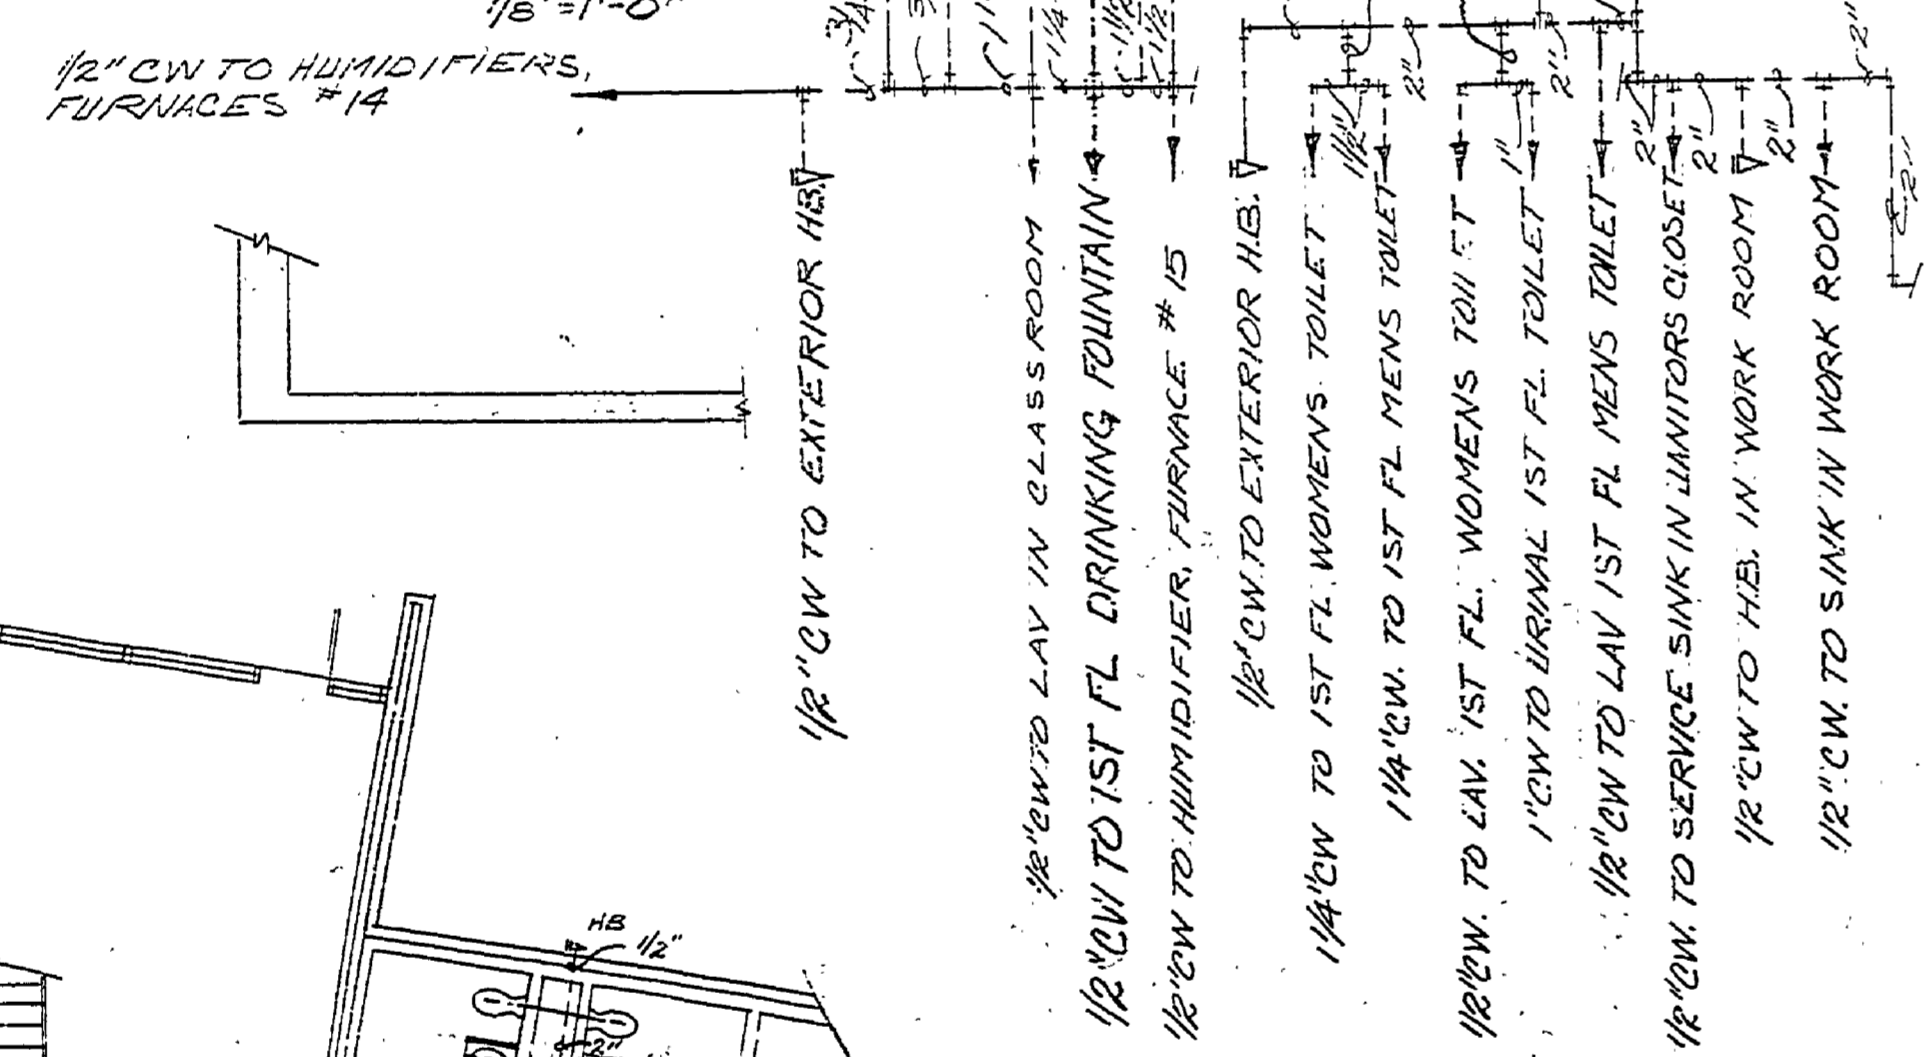 1/8"=1'-0"
1/2" CW TO HUMIDIFIERS,
FURNACES #14
3/4
1 1/4
1 1/2
1 1/2
2"
2"
2"
1 1/2"
1"
2"
2"
2"
2"
1/2" CW TO EXTERIOR H.B.
1/2" CW TO LAV IN CLASSROOM
1/2" CW TO 1ST FL DRINKING FOUNTAIN
1/2" CW TO HUMIDIFIER, FURNACE #15
1/2" CW. TO EXTERIOR H.B.
1 1/4" CW TO 1ST FL. WOMENS TOILET
1 1/4" CW. TO 1ST FL MENS TOILET
1/2" CW. TO LAV. 1ST FL. WOMENS TOILET
1" CW TO URINAL 1ST FL. TOILET
1/2" CW TO LAV 1ST FL MENS TOILET
1/2" CW. TO SERVICE SINK IN JANITORS CLOSET
1/2" CW TO H.B. IN WORK ROOM
1/2" CW. TO SINK IN WORK ROOM
HB
1/2"
2"